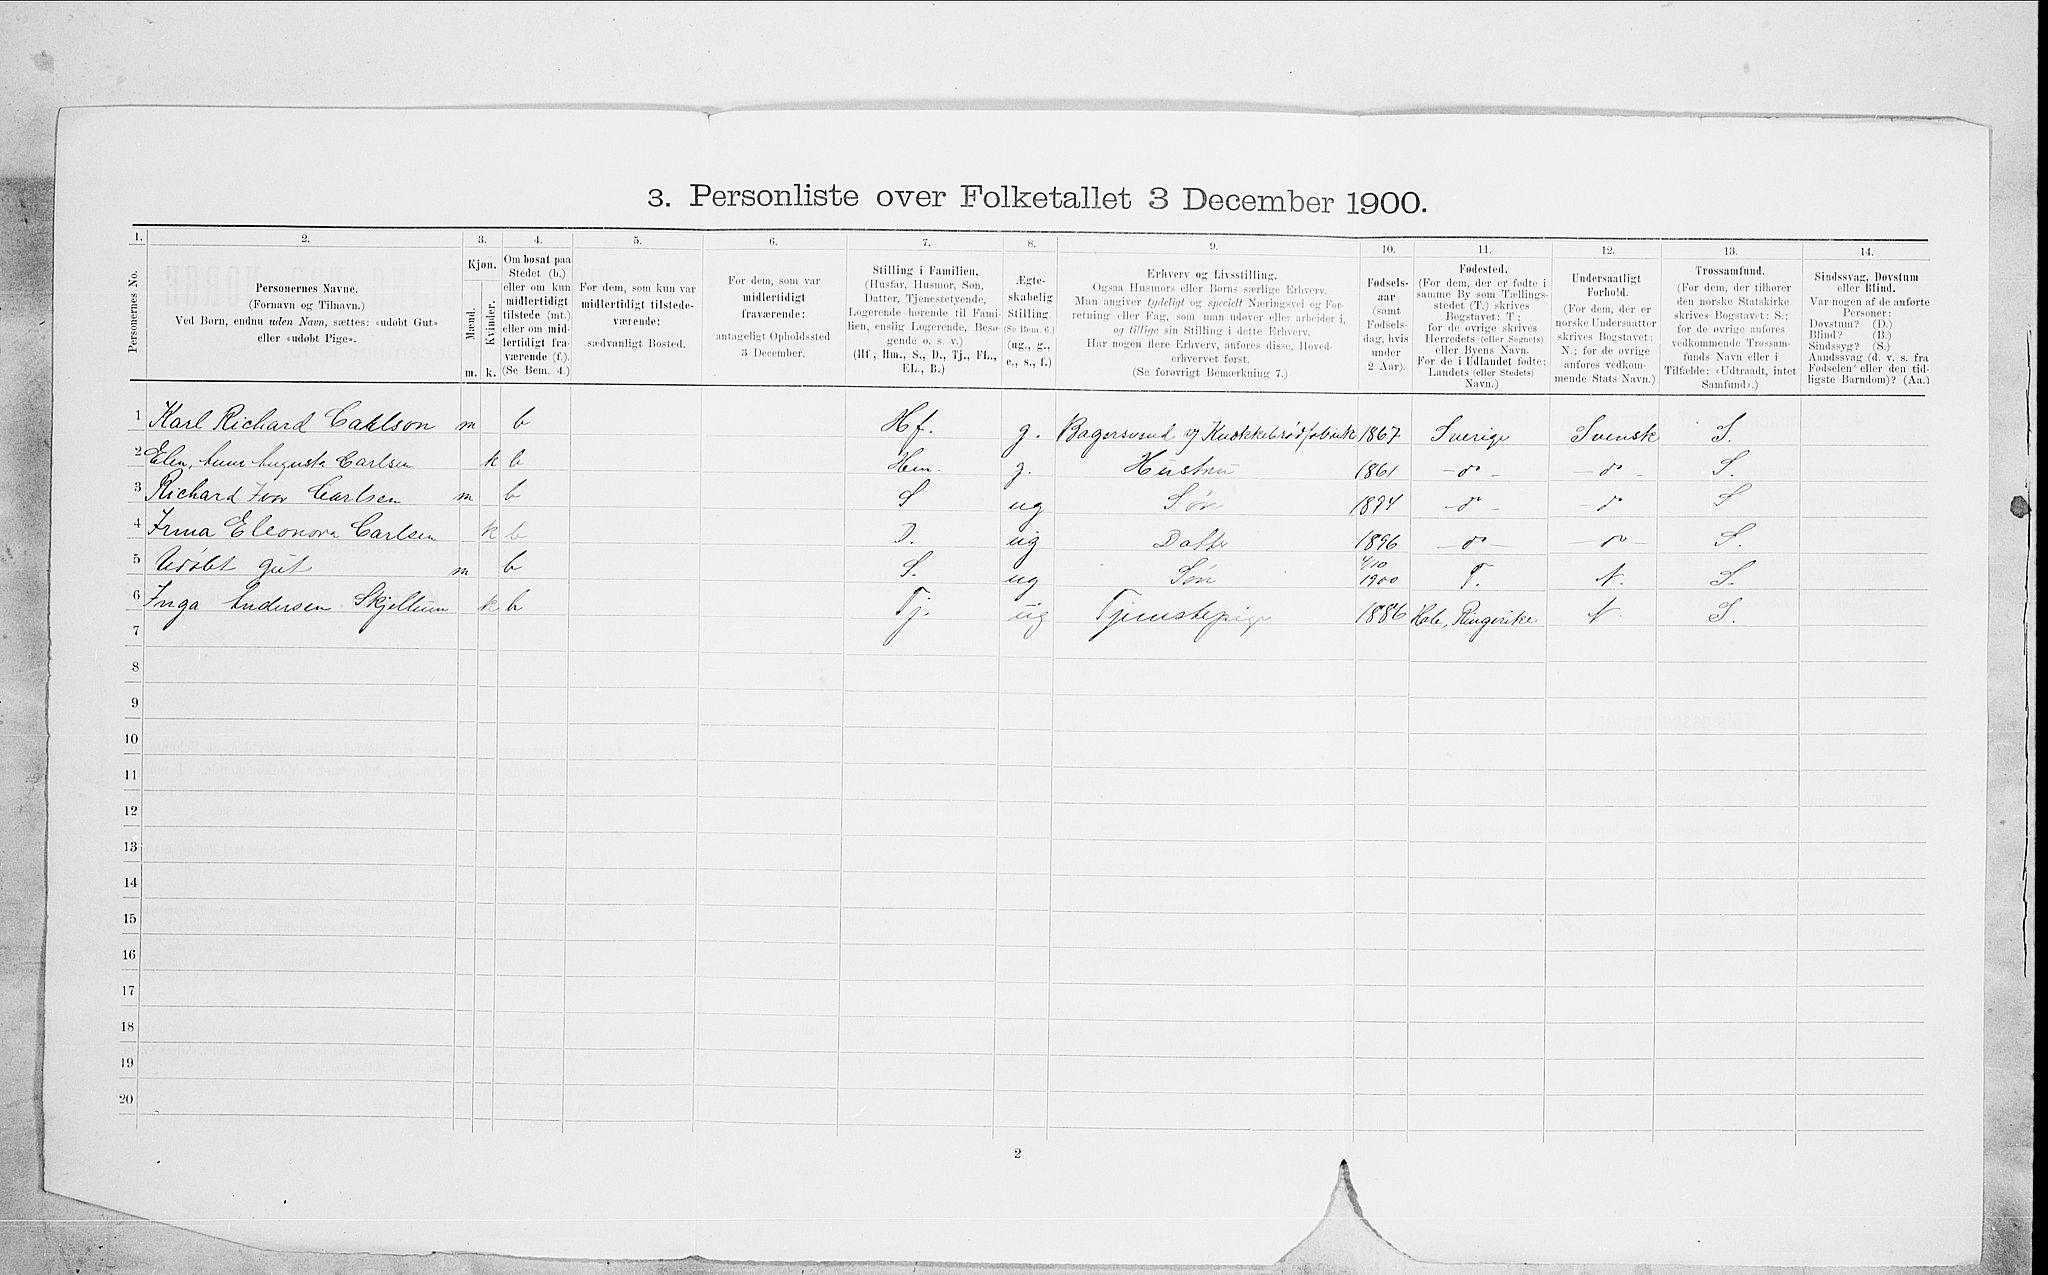 3. Personliste over Folketallet 3 December 1900.
1. 2. 3. 4. 5. 6. 7. 8. 9. 10. 11. 12. 13. 14.
Personernes No.
Personernes Navne.
(Fornavn og Tilnavn.)
Ved Børn, endnu uden Navn, sættes: «udøbt Gut»
eller «udøbt Pige».
Kjøn.
Mænd.
Kvinder.
m. k.
Om bosat paa
Stedet (b.)
eller om kun
midlertidigt
tilstede (mt.)
eller om mid-
lertidigt fra-
værende (f.).
(Se Bem. 4.)
For dem, som kun var
midlertidigt tilstede-
værende:
sædvanligt Bosted.
For dem, som var
midlertidigt
fraværende:
antageligt Opholdssted
3 December.
Stilling i Familien.
(Husfar, Husmor, Søn,
Datter, Tjenestetyende,
Logerende hørende til Fami-
lien, enslig Logerende, Besø-
gende o. s. v.)
(Hf, Hm., S., D., Tj., FL.,
EL., B.)
Ægte-
skabelig
Stilling.
(Se Bem. 6.)
(ug., g.,
e., s., f.)
Erhverv og Livsstilling.
Ogsaa Husmors eller Børns særlige Erhverv.
Man angiver tydeligt og specielt Næringsvei og For-
retning eller Fag, som man udøver eller arbeider i,
og tillige sin Stilling i dette Erhverv.
Har nogen flere Erhverv, anføres disse, Hoved-
erhvervet først.
(Se forøvrigt Bemærkning 7.)
Fødsels-
aar
(samt
Fødsels-
dag, hvis
under
2 Aar).
Fødested.
(For dem, der er fødte i
samme By som Tællings-
stedet (T.) skrives
Bogstavet: T;
for de øvrige skrives
Herredets (eller Sognets)
eller Byens Navn.
For de i Udlandet fødte:
Landets (eller Stedets)
Navn.)
Undersaatligt
Forhold.
(For dem, der er
norske Undersaatter
skrives Bogstavet:
N.; for de øvrige
anføres vedkom-
mende Stats Navn.)
Trossamfund.
(For dem, der tilhører
den norske Statskirke
skrives Bogstavet: S.;
for de øvrige anføres
vedkommende Trossam-
funds Navn eller i
Tilfælde: «Udtraadt, intet
Samfund».)
Sindssvag, Døvstum
eller Blind.
Var nogen af de anførte
Personer:
Døvstum? (D.)
Blind? (B.)
Sindssyg? (S.)
Aandssvag (d. v. s. fra
Fødselen eller den tid-
ligste Barndom)? (Aa.)
1 Karl Richard Carlson m b Hf. g. Bagersvend v/ Knækkebrødfabrik 1867 Sverige Svensk S.
2 Augusta Carlsen k b Hm. g. Hustru 1861 - do - - do - S.
3 Richard Ivar Carlsen m b S ug Søn 1894 - do - - do S
4 Irma Eleonora Carlsen k b D. ug Datter 1896 - do - - do - S.
5 Udøbt gut m b S. ug Søn 4/10 1900 T. N. S.
6 Inga Andersen Skjellum k b Tj. ug Tjenestepige 1886 Hole, Ringerike N. S.
7
8
9
10
11
12
13
14
15
16
17
18
19
20
2